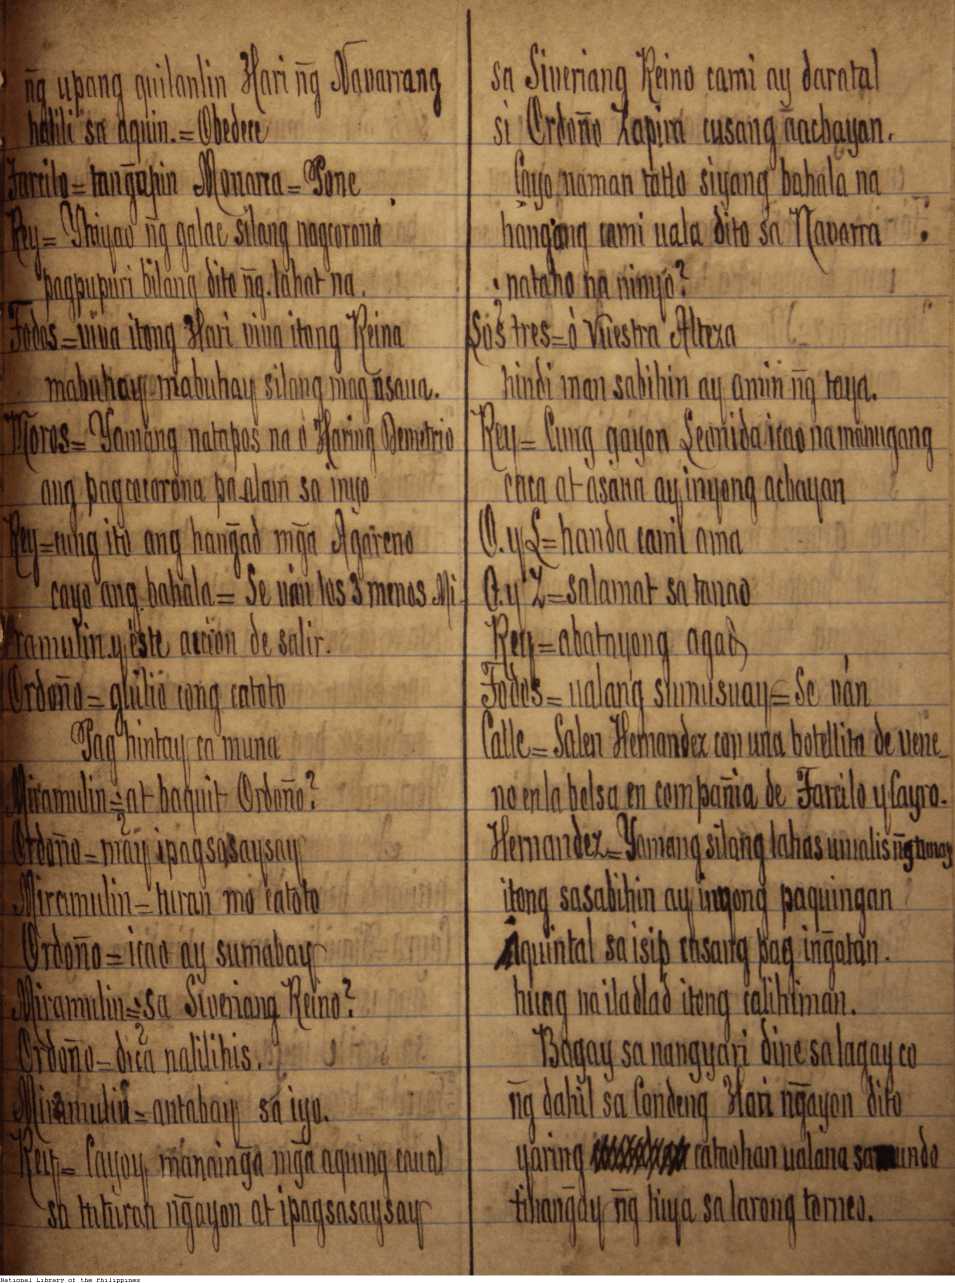 ñg upang quilanlin Hari ñg Navarrang
halili sa aquin.=Obedece
Farrilo=tanḡapin Monarca=Pone
Rey= Ytayao ñg galac silang nagcorona
pagpupuri bilang dito ñg lahat na.
Todos=viva itong Hari viva itong Reina
mabuhay mabuhay silang mag asaua.
Moros= Yamang natapos na ó Haring Demetrio
ang pagcocorona pa alam sa inyo
Rey=cung ito ang hanḡad mḡa Agareno
cayo ang bahala= Se ván los 3 menos Mi
ramulin y éste accion de salir.
Ordoño= giulio cong catoto
Pag hintay ca muna
Miramulin= at baquit Ordoño?
Ordoño=máy ipagsasaysay
Miramulin=turan mo catoto
Ordoño=icao ay sumabay
Miramulin=sa Siveriang Reino?
Ordoño=dica nalilihis.
Miramulin=antabay sa iyo.
Rey= Cayoy manainḡa mḡa aquing caual
sa tuturan nḡayon at ipagsasaysay
sa Siveriang Reino cami ay daratal
si Ordoño Zapira cusang aachayan.
Cayo naman tatlo siyang bahala na
hangang cami uala dito sa Navarra
nataho na ninyo?
Los tres=ó Vuestra Alteza
hindi man sabihin ay amin ñg taya.
Rey= Cung gayon Leonida icao na manugang
cica at asana ay inyong achayan
O. y L=handa cami ama
O. y Z=salamat sa tanao
Rey=abatayong agad
Todos=ualang sumusuay= Se ván
Calle= Salen Hernandez con una botellita de vene
no en la bolsa en compañia de Farrilo y Cayro.
Hernandez= Yamang silang lahas umalis ñg
itong sasabihin ay inyong paquingan
Aquintal sa isip cusang pag inḡatan.
huag na iladlad itong calihiman.
Bagay sa nangyari dine sa lagay co
ñg dahil sa Condeng Hari nḡayon dito
yaring catauhan ualana sa mundo
tihanḡay ñg hiya sa larong torneo.
National Library of the Philippines